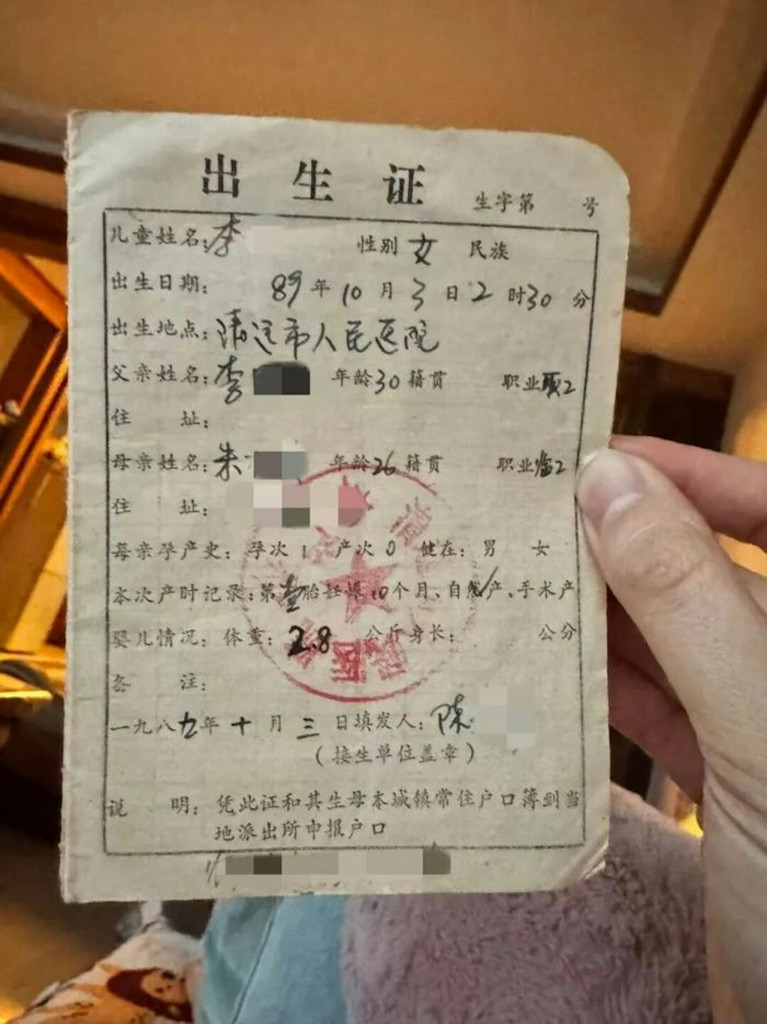 出生证
生字第 号
儿童姓名:李 性别 女 民族
出生日期: 89年10月3日2时30分
出生地点:清远市人民医院
父亲姓名:李 年龄30籍贯 职业
住 址:
母亲姓名:朱 年龄26籍贯 职业
住 址:
母亲孕产史:孕次1 产次0 健在:男 女
本次产时记录:第壹胎妊娠10个月、自然产、手术产
婴儿情况:体重:2.8 公斤身长: 公分
备 注:
一九八九年十月三日填发人:陈
(接生单位盖章)
说 明:凭此证和其生母本城镇常住户口簿到当
地派出所申报户口